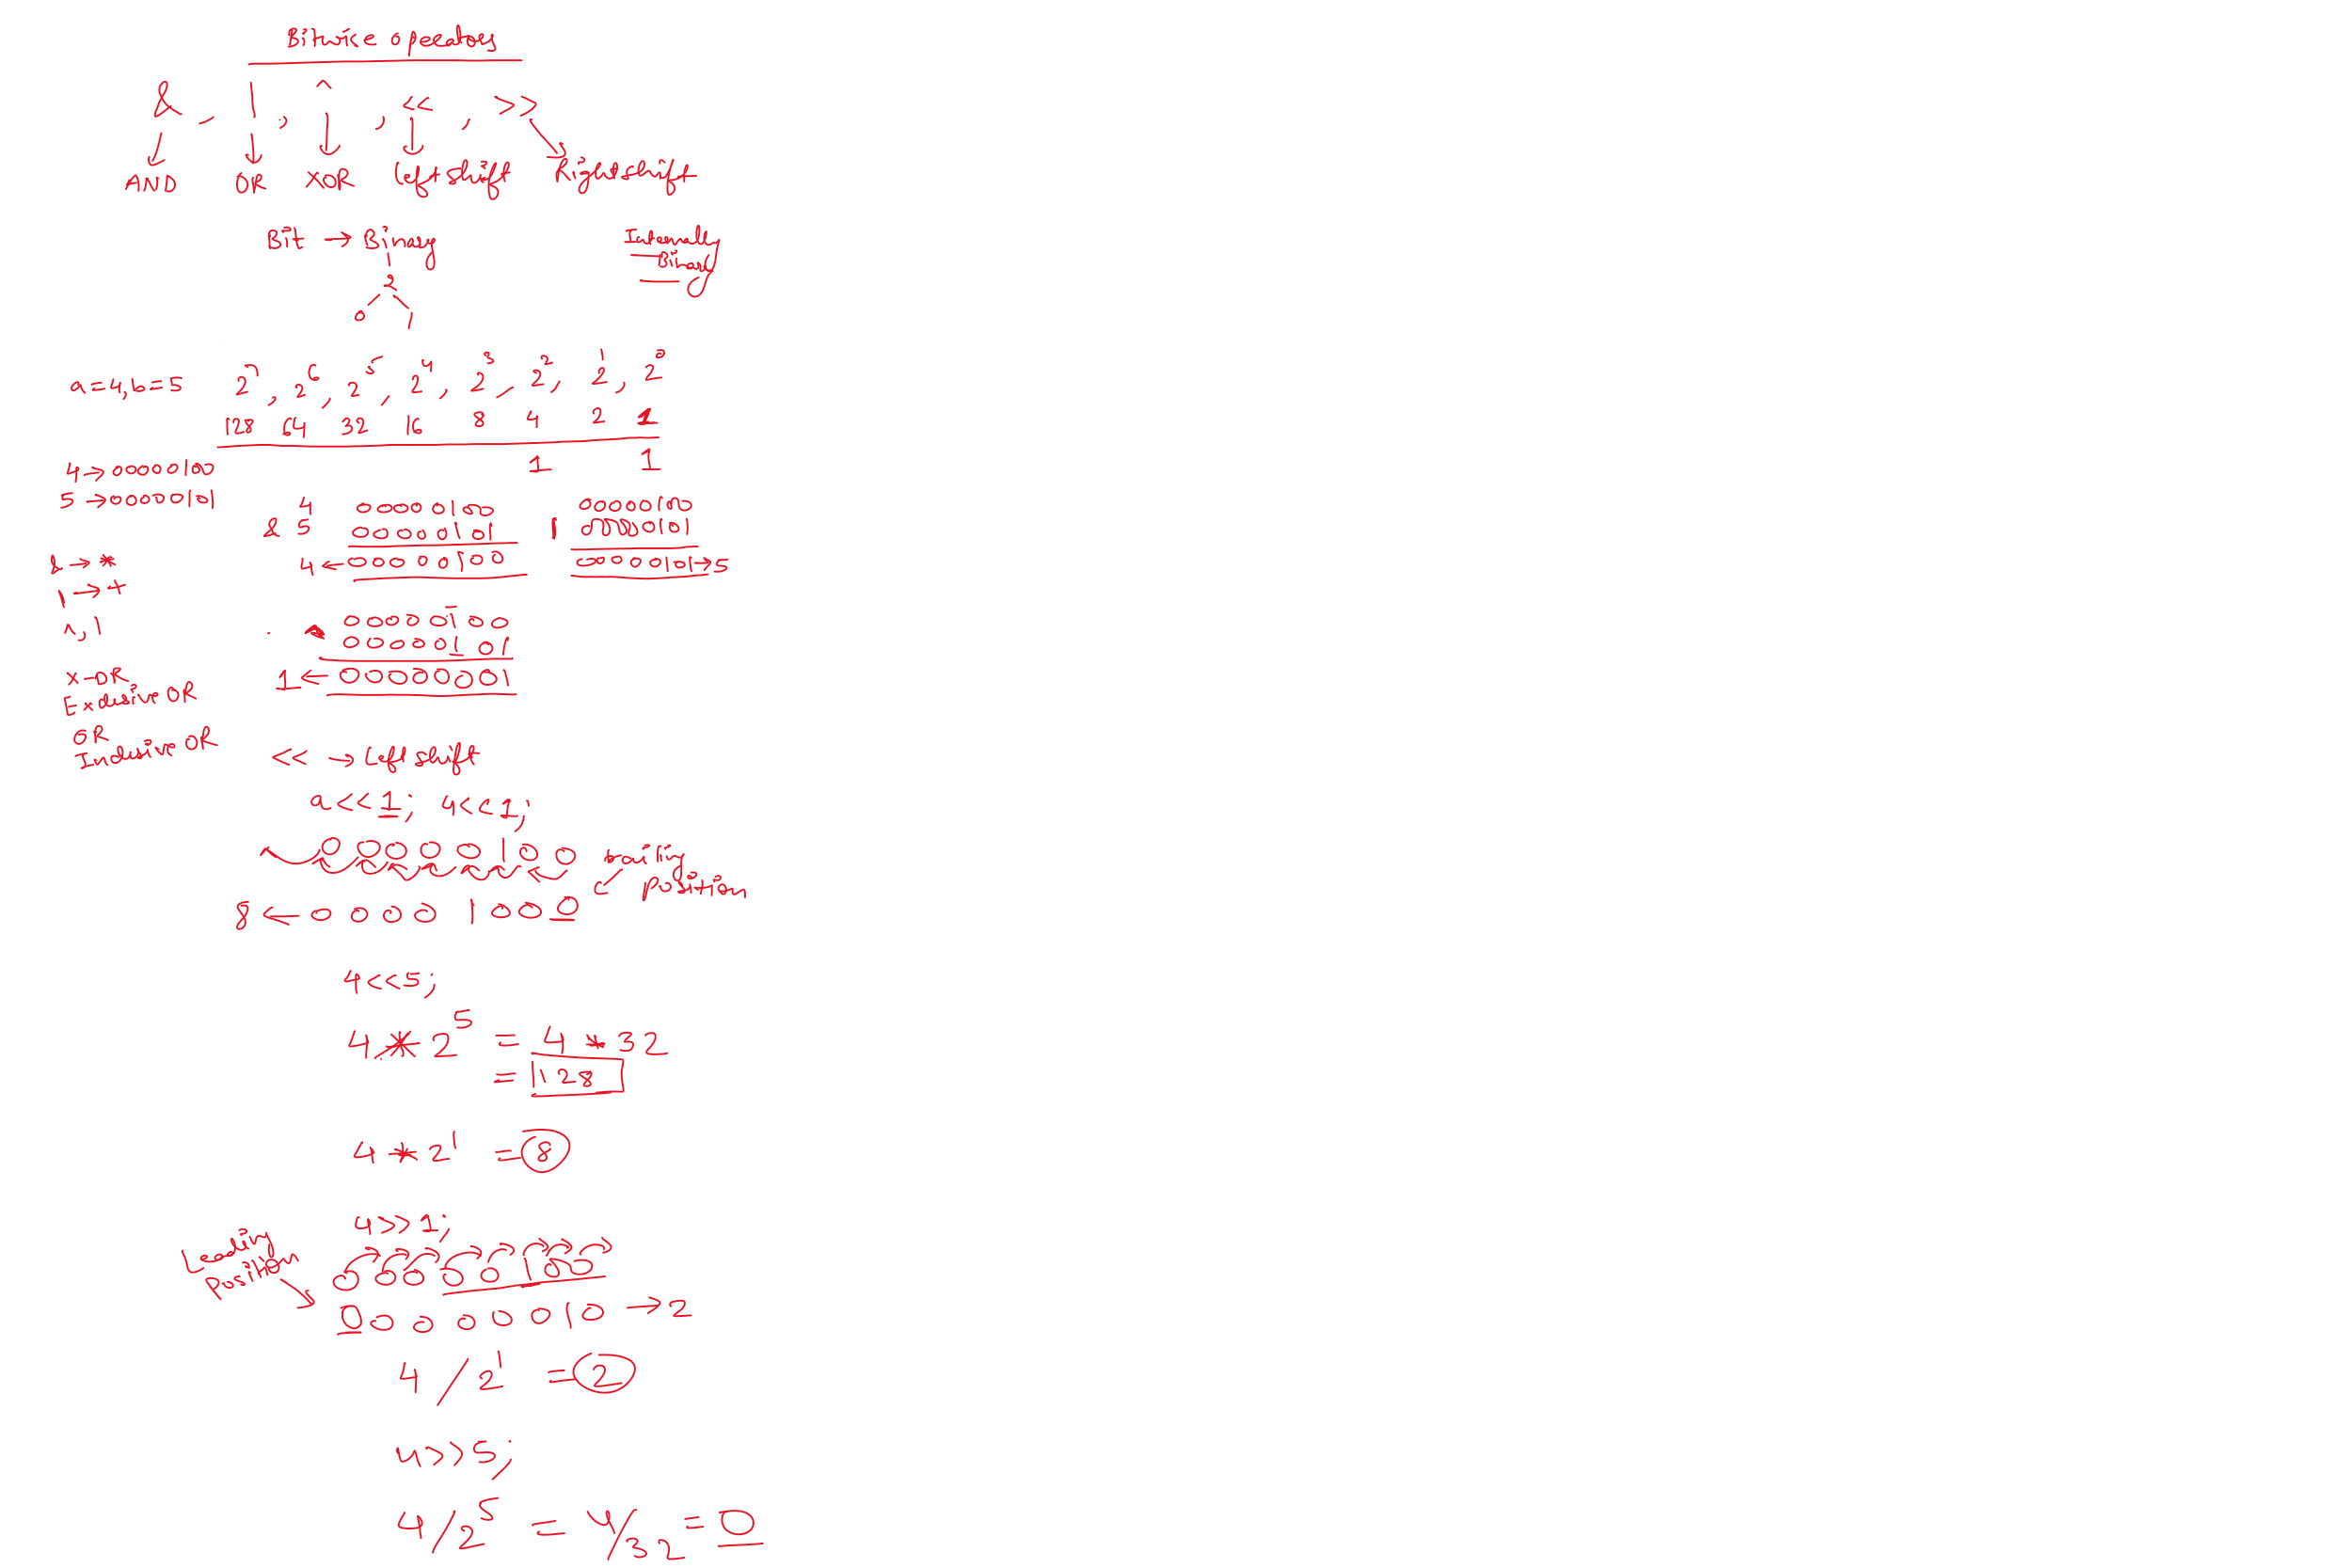 Bitwise operators
& , | , ^ , << , >>
AND OR XOR Left shift Right shift
Bit → Binary
Internally
Binary
2
0 1
a=4, b=5
2^7, 2^6, 2^5, 2^4, 2^3, 2^2, 2^1, 2^0
128 64 32 16 8 4 2 1
1 1
4 → 00000100
5 → 00000101
4 00000100
& 5 00000101
4 ← 00000100
00000100
| 00000101
00000101 → 5
& → *
| → +
^, |
00000100
^ 00000101
1 ← 00000001
X-OR
Exclusive OR
OR
Inclusive OR
<< → Left shift
a<<1; 4<<1;
00000100
trailing
position
8 ← 00001000
4<<5;
4 * 2^5 = 4 * 32
= 128
4 * 2^1 = 8
4>>1;
Leading
Position
00000100
00000010 → 2
4 / 2^1 = 2
4>>5;
4/2^5 = 4/32 = 0